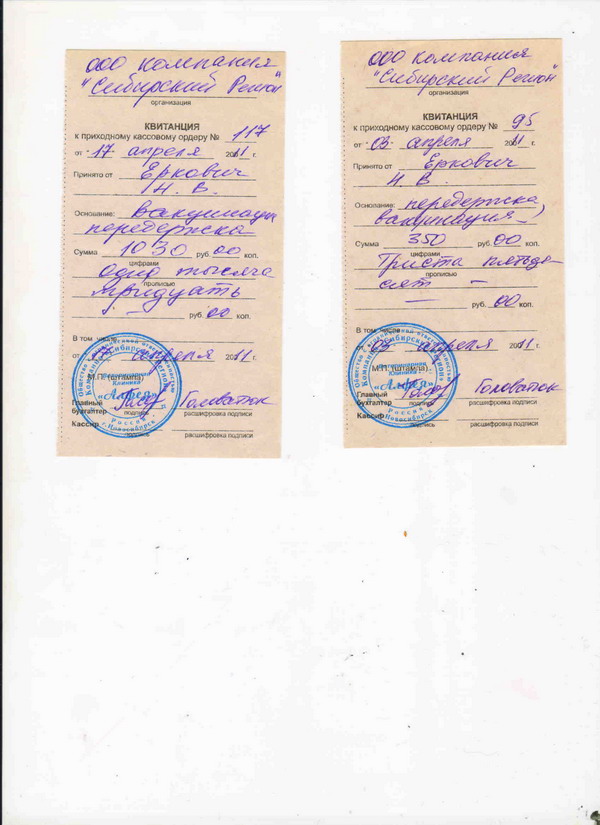 ООО компания
"Сибирский Регион"
организация
КВИТАНЦИЯ
к приходному кассовому ордеру № 117
от 17 апреля 2011 г.
Принято от Еркович
Н. В.
Основание: вакцинация
передержка
Сумма 1030 руб. 00 коп.
цифрами
Одна тысяча
прописью
тридцать
— руб. 00 коп.
В том числе
от 17 апреля 2011 г.
М.П. (штампа)
Главный
бухгалтер Головаток
подпись расшифровка подписи
Кассир
подпись расшифровка подписи
Общество с ограниченной ответственностью
Компания «Сибирский Регион»
Ветеринарная
клиника
«Алфея»
Россия
г. Новосибирск
ООО компания
"Сибирский Регион"
организация
КВИТАНЦИЯ
к приходному кассовому ордеру № 95
от 03 апреля 2011 г.
Принято от Еркович
Н. В.
Основание: передержка,
вакцинация —
Сумма 350 руб. 00 коп.
цифрами
Триста пятьде-
прописью
сят —
— руб. 00 коп.
В том числе
от 03 апреля 2011 г.
М.П. (штампа)
Главный
бухгалтер Головаток
подпись расшифровка подписи
Кассир
подпись расшифровка подписи
Общество с ограниченной ответственностью
Компания «Сибирский Регион»
Ветеринарная
клиника
«Алфея»
Россия
г. Новосибирск